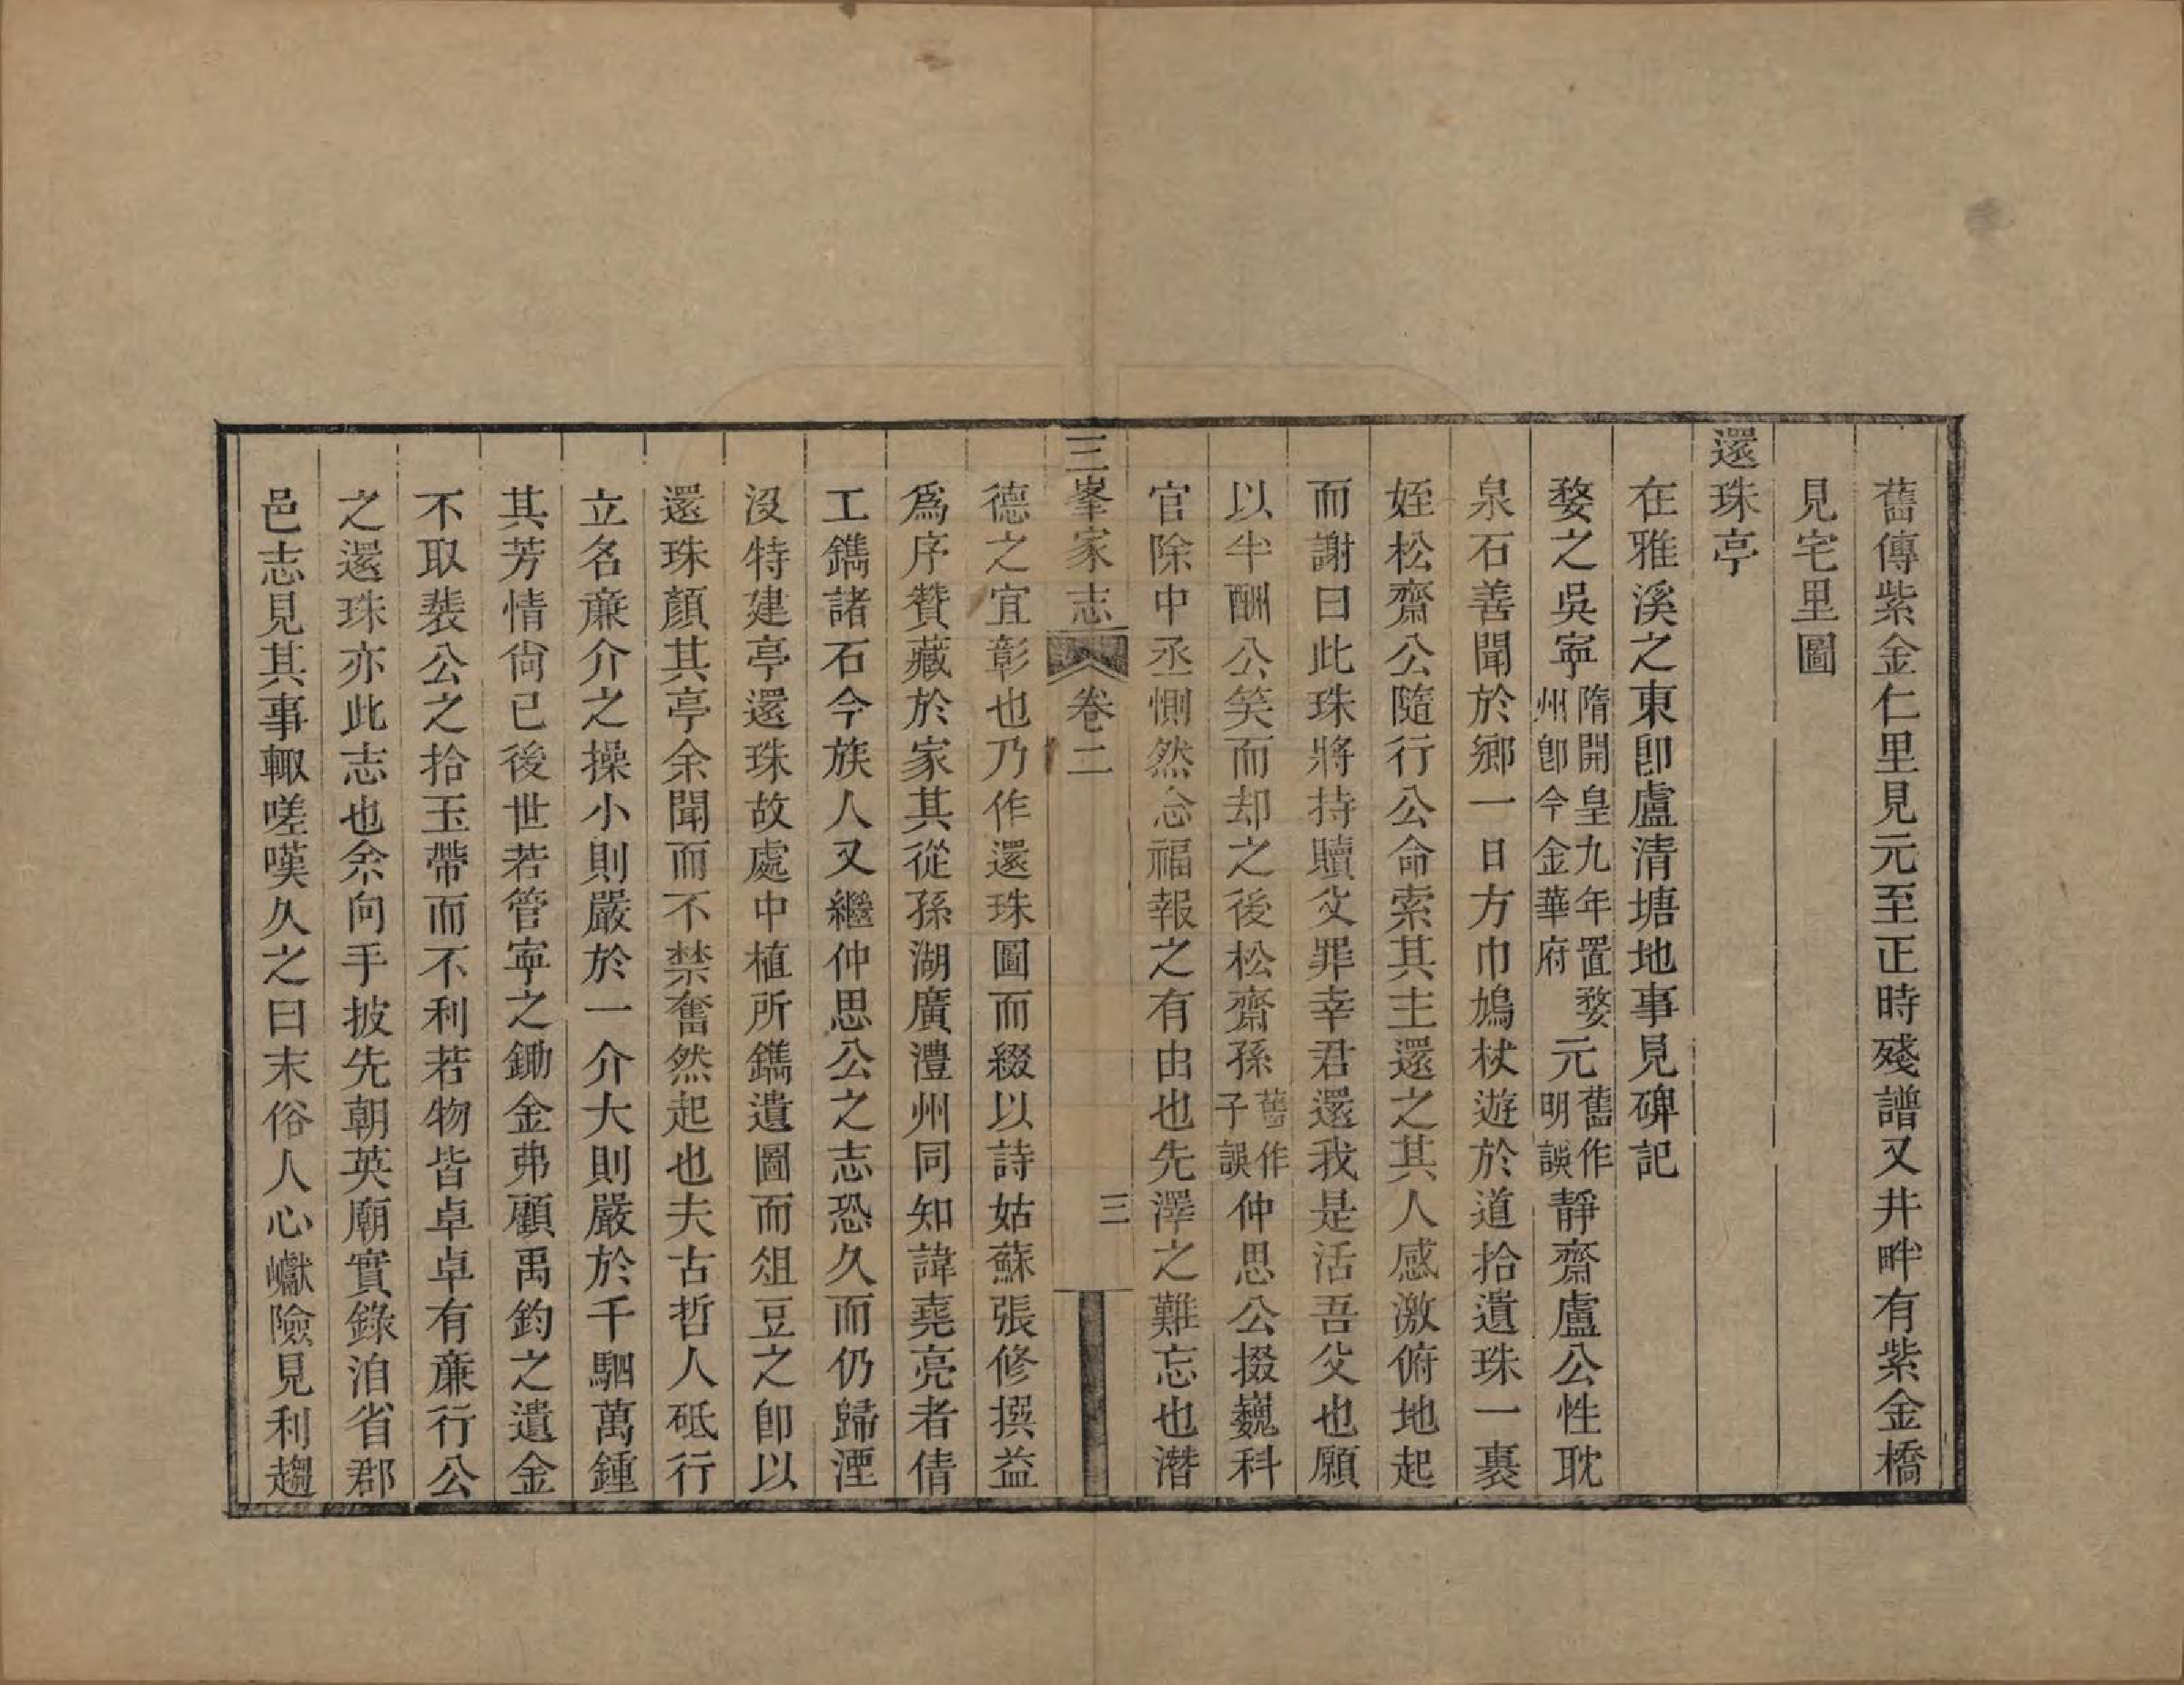 舊傳紫金仁里見元至正時殘譜又井畔有紫金橋
見宅里圖
還珠亭
在雅溪之東卽盧清塘地事見碑記
婺之吳寧隋開皇九年置婺州卽今金華府元舊作明誤靜齋盧公性耽
泉石善聞於鄉一日方巾鳩杖遊於道拾遺珠一裹
姪松齋公隨行公命索其主還之其人感激俯地起
而謝曰此珠將持贖父罪幸君還我是活吾父也願
以半酬公笑而却之後松齋孫舊作子誤仲思公掇巍科
官除中丞惻然念福報之有由也先澤之難忘也潛
三峯家志 卷二 三
德之宜彰也乃作還珠圖而綴以詩姑蘇張修撰益
爲序贊藏於家其從孫湖廣澧州同知諱堯亮者倩
工鐫諸石今族人又繼仲思公之志恐久而仍歸湮
沒特建亭還珠故處中植所鐫遺圖而俎豆之卽以
還珠顏其亭余聞而不禁奮然起也夫古哲人砥行
立名亷介之操小則嚴於一介大則嚴於千駟萬鍾
其芳情尙已後世若管寧之鋤金弗顧禹鈞之遺金
不取裴公之拾玉帶而不利若物皆卓卓有亷行公
之還珠亦此志也余向手披先朝英廟實錄洎省郡
邑志見其事輙嗟嘆久之曰末俗人心巘險見利趨